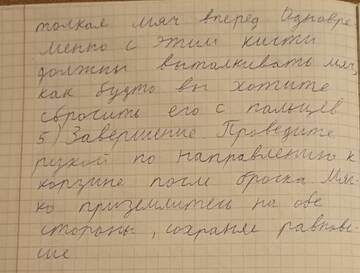 толкая мяч вперед Одновре
менно с этим кисти
должны выталкивать мяч,
как будто вы хотите
сбросить его с пальцев
5) Завершение Проведите
рукой по направлению к
корзине после броска Мяг-
ко приземлитесь на обе
стороны, сохраняя равнове-
сие